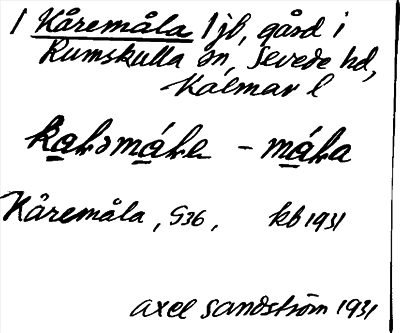 1 Kåremåla 1 jb, gård i
Rumskulla sn, Sevede hd,
Kalmar l
– måla
Kåremåla, S36, kb 1931
Axel Sandström 1931